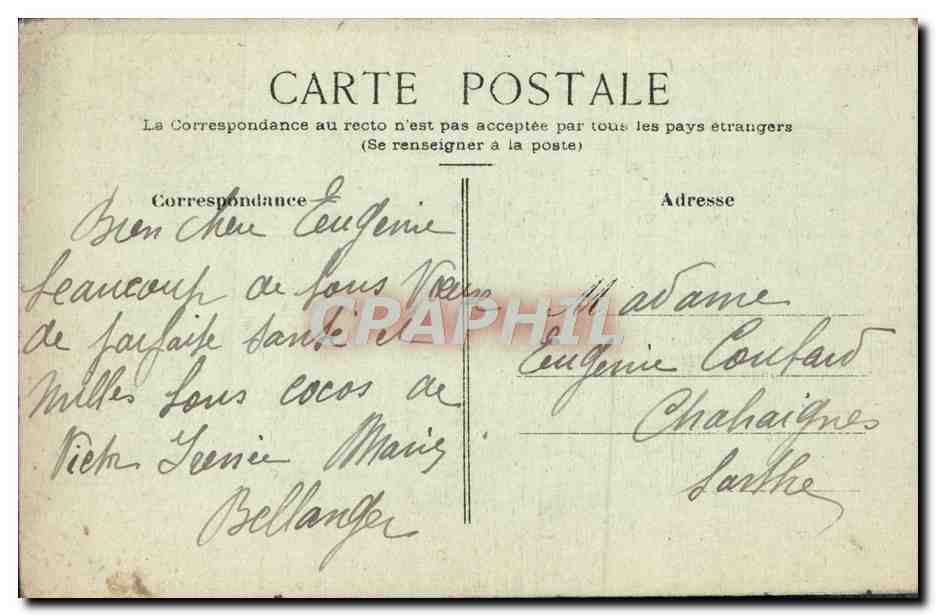 CARTE POSTALE
La Correspondance au recto n'est pas acceptée par tous les pays étrangers
(Se renseigner à la poste)
Correspondance
Bien chere Eugénie
beaucoup de bons Vœux
de parfaite santé et
milles bons cocos de
Victor Marie
Bellanger
Adresse
Madame
Eugénie
Chahaignes
Sarthe
CPAPHIL